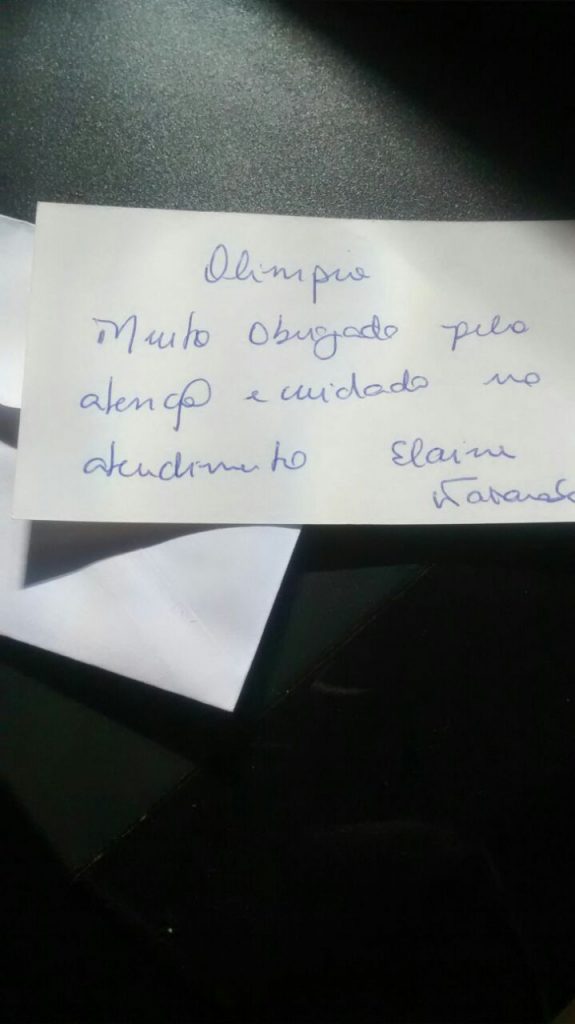 Olimpia
Muito Obrigado pela
atenção e cuidado no
atendimento Elaine